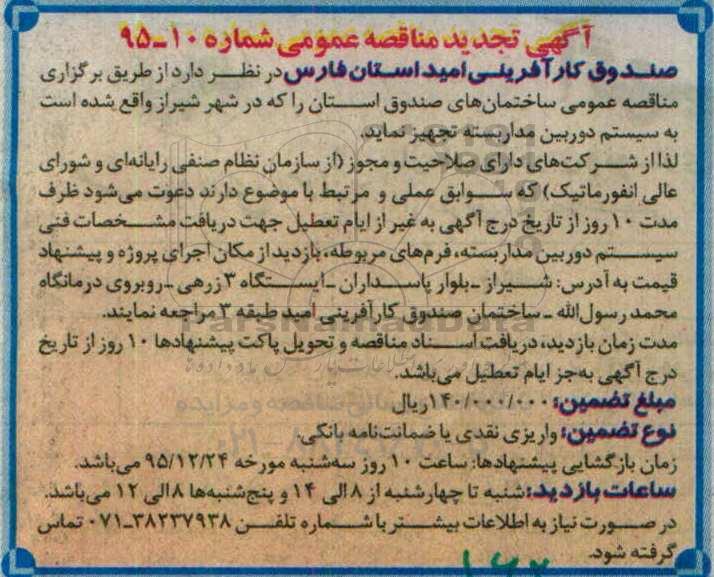 آگهی تجدید مناقصه عمومی شماره ۱۰-۹۵
صندوق کارآفرینی امید استان فارس در نظر دارد از طریق برگزاری
مناقصه عمومی ساختمان‌های صندوق استان را که در شهر شیراز واقع شده است
به سیستم دوربین مداربسته تجهیز نماید.
لذا از شرکت‌های دارای صلاحیت و مجوز (از سازمان نظام صنفی رایانه‌ای و شورای
عالی انفورماتیک) که سوابق عملی و مرتبط با موضوع دارند دعوت می‌شود ظرف
مدت ۱۰ روز از تاریخ درج آگهی به غیر از ایام تعطیل جهت دریافت مشخصات فنی
سیستم دوربین مداربسته، فرم‌های مربوطه، بازدید از مکان اجرای پروژه و پیشنهاد
قیمت به آدرس: شیراز ـ بلوار پاسداران ـ ایستگاه ۳ زرهی ـ روبروی درمانگاه
محمد رسول‌الله ـ ساختمان صندوق کارآفرینی امید طبقه ۳ مراجعه نمایند.
ParsNamadData
مدت زمان بازدید، دریافت اسناد مناقصه و تحویل پاکت پیشنهادها ۱۰ روز از تاریخ
درج آگهی به‌جز ایام تعطیل می‌باشد.
مبلغ تضمین: ۱۴۰/۰۰۰/۰۰۰ ریال
نوع تضمین: واریزی نقدی یا ضمانت‌نامه بانکی.
زمان بازگشایی پیشنهادها: ساعت ۱۰ روز سه‌شنبه مورخه ۹۵/۱۲/۲۴ می‌باشد.
ساعات بازدید: شنبه تا چهارشنبه از ۸ الی ۱۴ و پنج‌شنبه‌ها ۸ الی ۱۲ می‌باشد.
در صورت نیاز به اطلاعات بیشتر با شماره تلفن ۳۸۲۳۷۹۳۸-۰۷۱ تماس
گرفته شود.